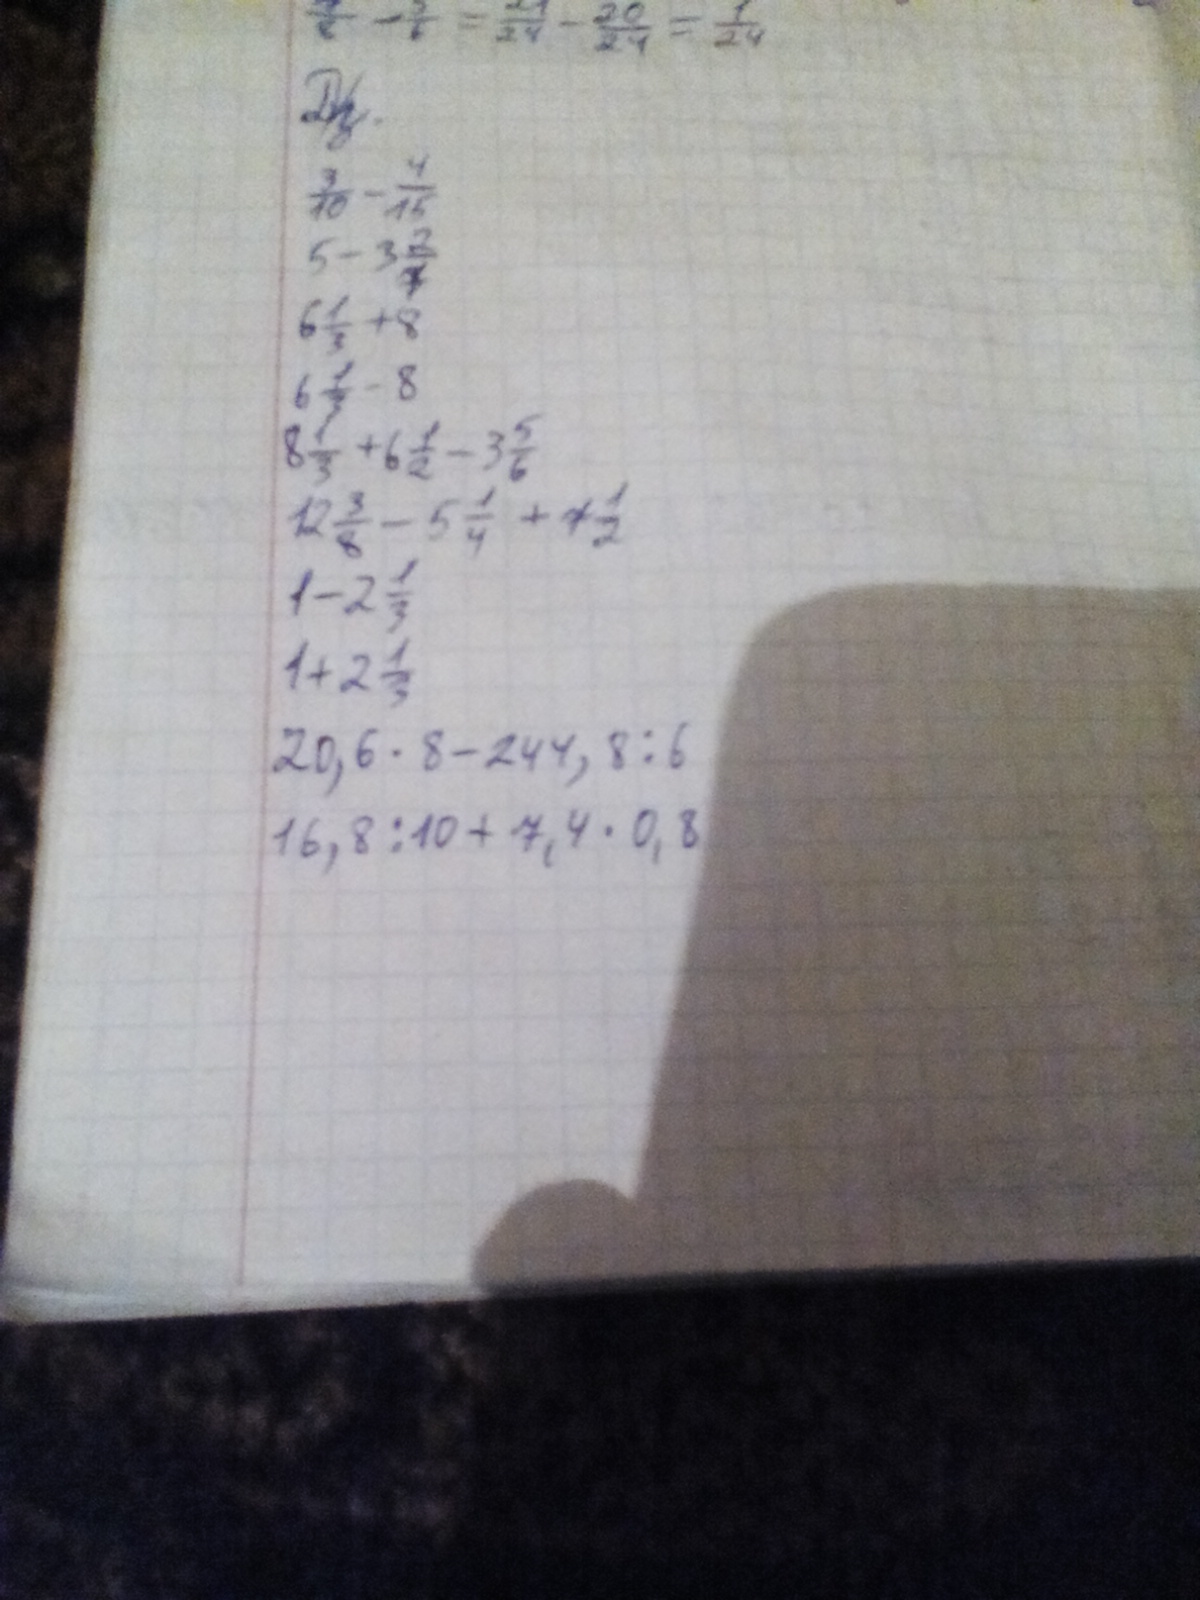 7/8 - 5/6 = 21/24 - 20/24 = 1/24
Дз.
3/10 - 4/15
5 - 3 2/7
6 1/3 + 8
6 1/3 - 8
8 1/3 + 6 1/2 - 3 5/6
12 3/8 - 5 1/4 + 7 1/2
1 - 2 1/3
1 + 2 1/3
20,6 · 8 - 244, 8 : 6
16,8 : 10 + 7,4 · 0,8